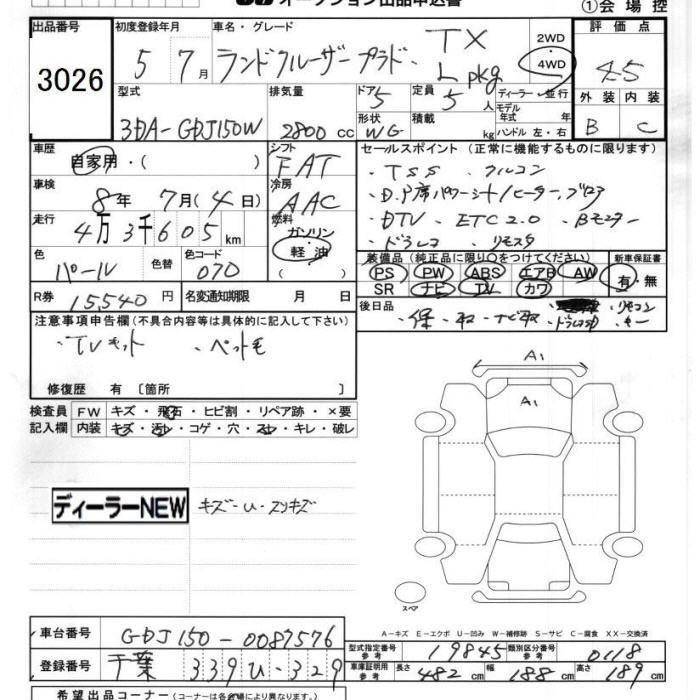 オークション出品申込書
①会場控
出品番号 初度登録年月 車名・グレード 2WD 評価点
3026 5 7月 ランドクルーザープラド・TX 4WD 4.5
L pkg
型式 排気量 ドア 定員 ディーラー・並行 外装 内装
3DA-GDJ150W 2800cc 5 5人 モデル年式 年 B C
形状 WG 積載 kg ハンドル 左・右
車歴 シフト セールスポイント(正常に機能するものに限ります)
自家用・( ) FAT ・TSS ・クルコン
車検 冷房 ・D.P席パワーシート/ヒーター、ブロア
8年 7月(4日) AAC ・DTV ・ETC2.0 ・Bモニター
走行 燃料 ・ドラレコ ・リモスタ
4万3千605km ガソリン
軽油
( )
色 色替 色コード 装備品(純正品に限り○をつけてください) 新車保証書
パール 070 PS PW ABS エアB AW 有・無
SR ナビ TV カワ
R券 15,540円 名変通知期限 月 日 後日品
・保・取・ナビ取 ・ドラレコ取 ・リモコン ・キー
注意事項申告欄(不具合内容等は具体的に記入して下さい)
・TVキット ・ペット毛
修復歴 有〔箇所 〕
検査員 FW キズ・飛石・ヒビ割・リペア跡・×要
記入欄 内装 キズ・汚レ・コゲ・穴・スレ・キレ・破レ
A1
A1
ディーラーNEW キズ・U・スリキズ
スペア
A-キズ E-エクボ U-凹み W-補修跡 S-サビ C-腐食 XX-交換済
車台番号 GDJ150-0087576
型式指定番号 参考 19845 類別区分番号 参考 0118
登録番号 千葉 339 ひ・329
車庫証明用 参考 長さ 482cm 幅 188cm 高さ 189cm
希望出品コーナー(コーナーは各会場により異なります。)